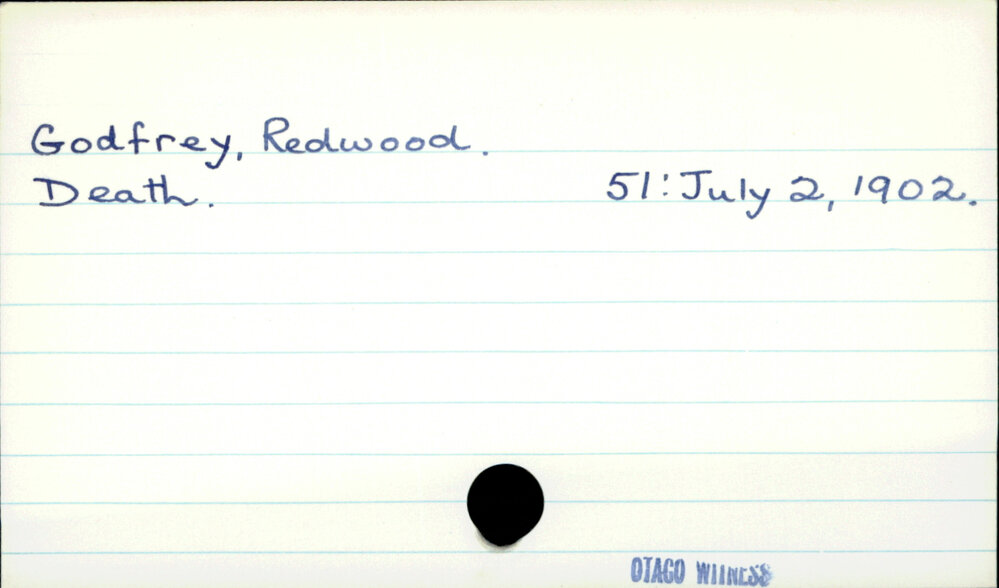 Godfrey, Redwood.
Death. 51: July 2, 1902.
OTAGO WITNESS